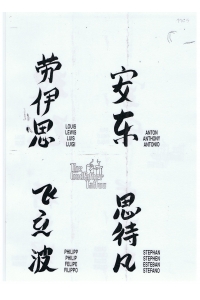 劳伊思
LOUIS
LEWIS
LUIS
LUIGI
安东
ANTON
ANTHONY
ANTONIO
飞立波
PHILIPP
PHILIP
FELIPE
FILIPPO
思待凡
STEPHAN
STEPHEN
ESTEBAN
STEFANO